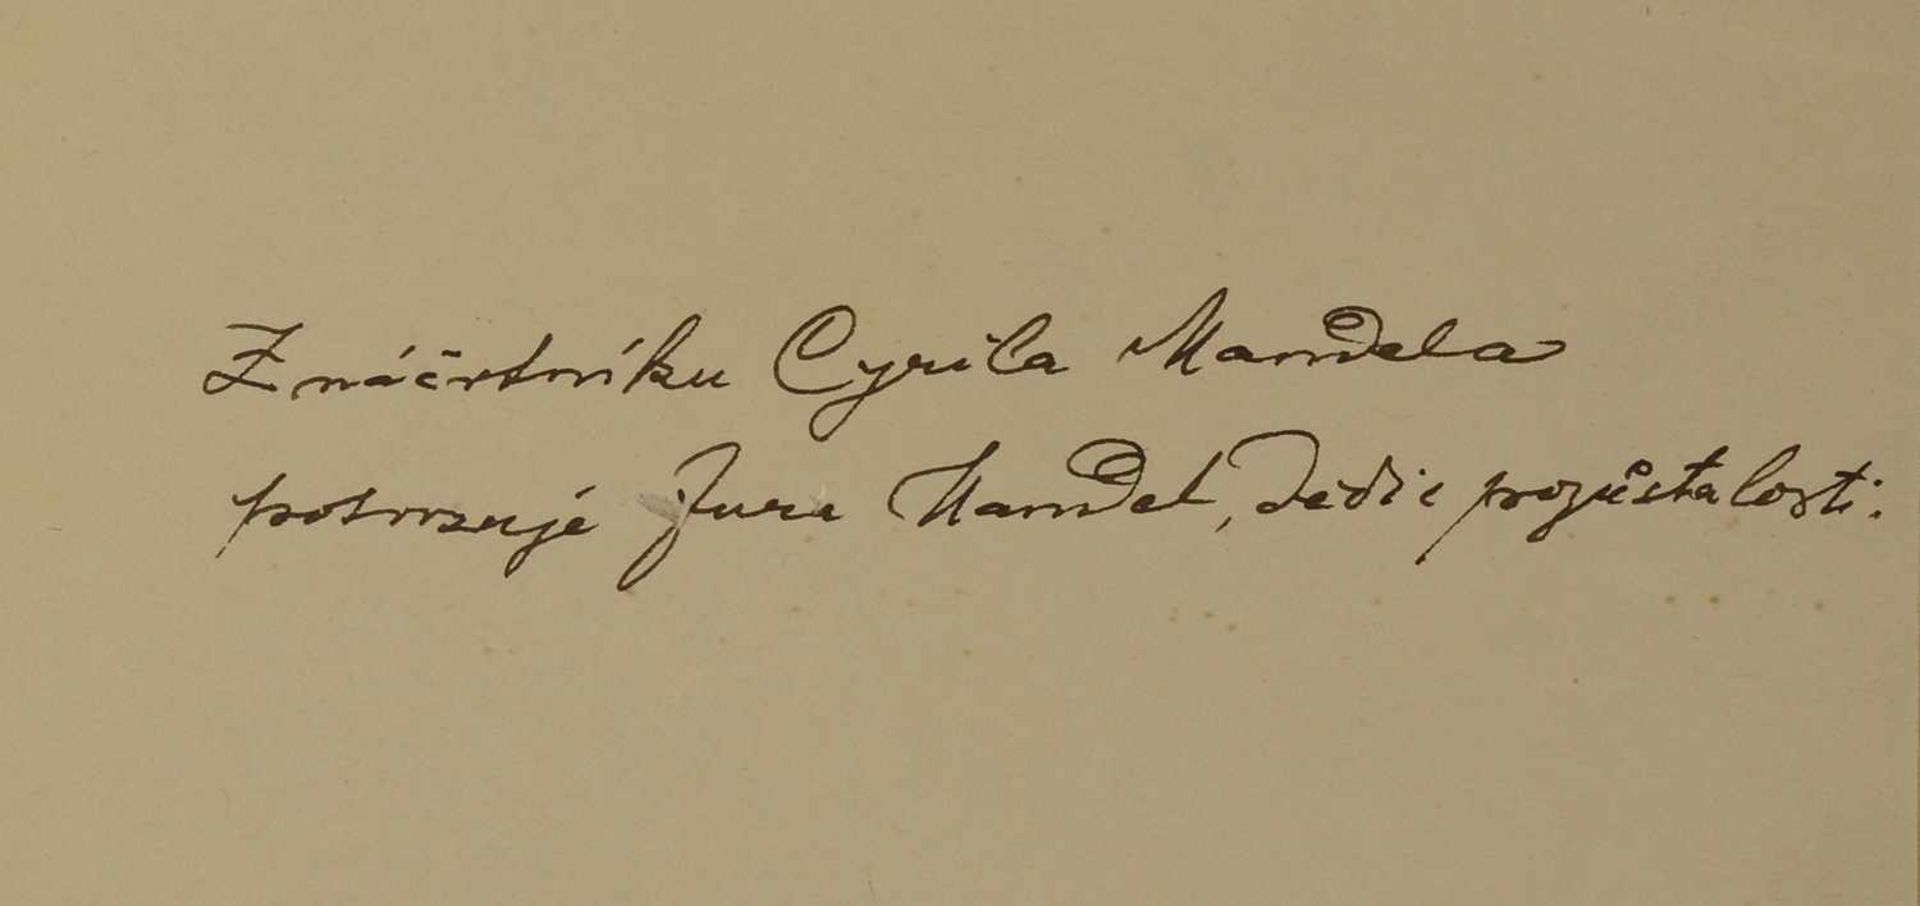 Z náčrtníku Cyrila Mandela
potvrzuje Jura Mandel, dědic pozůstalosti.